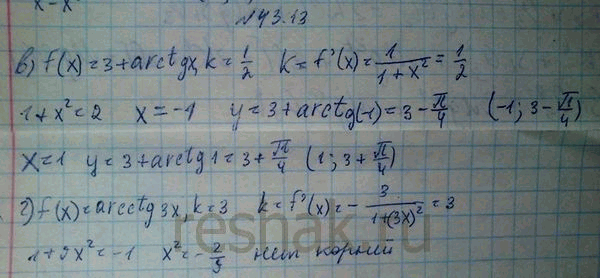 x-x²
№43.13
в) f(x)=3+arctgx, k=1/2 k=f'(x)=1/(1+x²)=1/2
1+x²=2 x=-1 y=3+arctg(-1)=3-π/4 (-1; 3-π/4)
x=1 y=3+arctg1=3+π/4 (1; 3+π/4)
г) f(x)=arcctg3x, k=3 k=f'(x)=-3/(1+(3x)²)=3
1+9x²=-1 x²=-2/9 нет корней